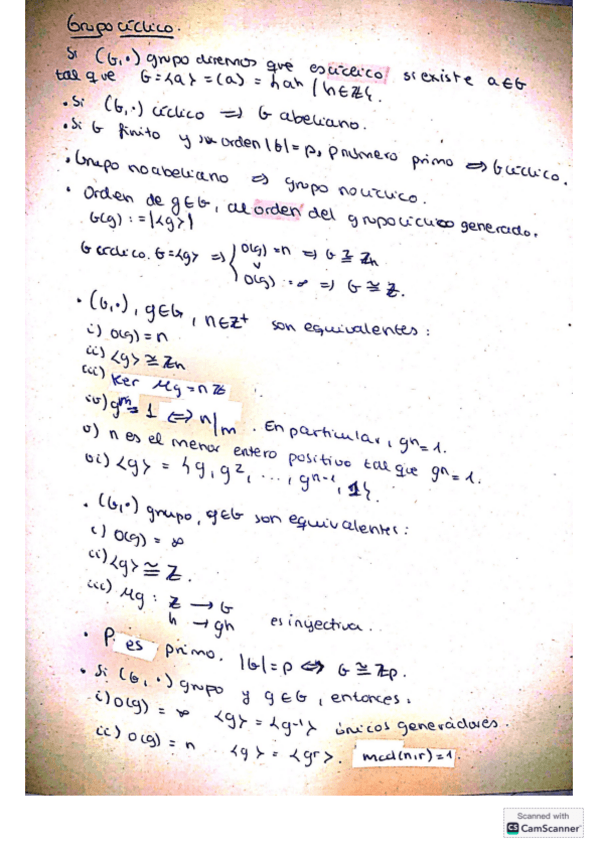 Grupo cíclico.
Si (G,·) grupo diremos que es cíclico si existe a∈G
tal que G=<a>=(a)={aⁿ/n∈Z}.
• Si (G,·) cíclico ⇒ G abeliano.
• Si G finito y su orden |G|=p, p número primo ⇒ G cíclico.
• Grupo no abeliano ⇒ grupo no cíclico.
• Orden de g∈G, al orden del grupo cíclico generado.
O(g):=|<g>|
G cíclico. G=<g> ⇒ { O(g)=n ⇒ G≅Zn
∨
O(g):=∞ ⇒ G≅Z.
• (G,·), g∈G, n∈Z⁺ son equivalentes:
i) O(g)=n
ii) <g>≅Zn
iii) Ker μg=nZ
iv) gᵐ=1 ⇔ n|m. En particular, gⁿ=1.
v) n es el menor entero positivo tal que gⁿ=1.
vi) <g>={g,g²,...,gⁿ⁻¹,1}.
• (G,·) grupo, g∈G son equivalentes:
i) O(g)=∞
ii) <g>≅Z.
iii) μg: Z → G
n → gn es inyectiva..
• P es primo. |G|=p ⇔ G≅Zp.
• Si (G,·) grupo y g∈G, entonces:
i) O(g)=∞ <g>=<g⁻¹> únicos generadores.
ii) O(g)=n <g>=<gʳ>. mcd(n,r)=1.
Scanned with
CS CamScanner